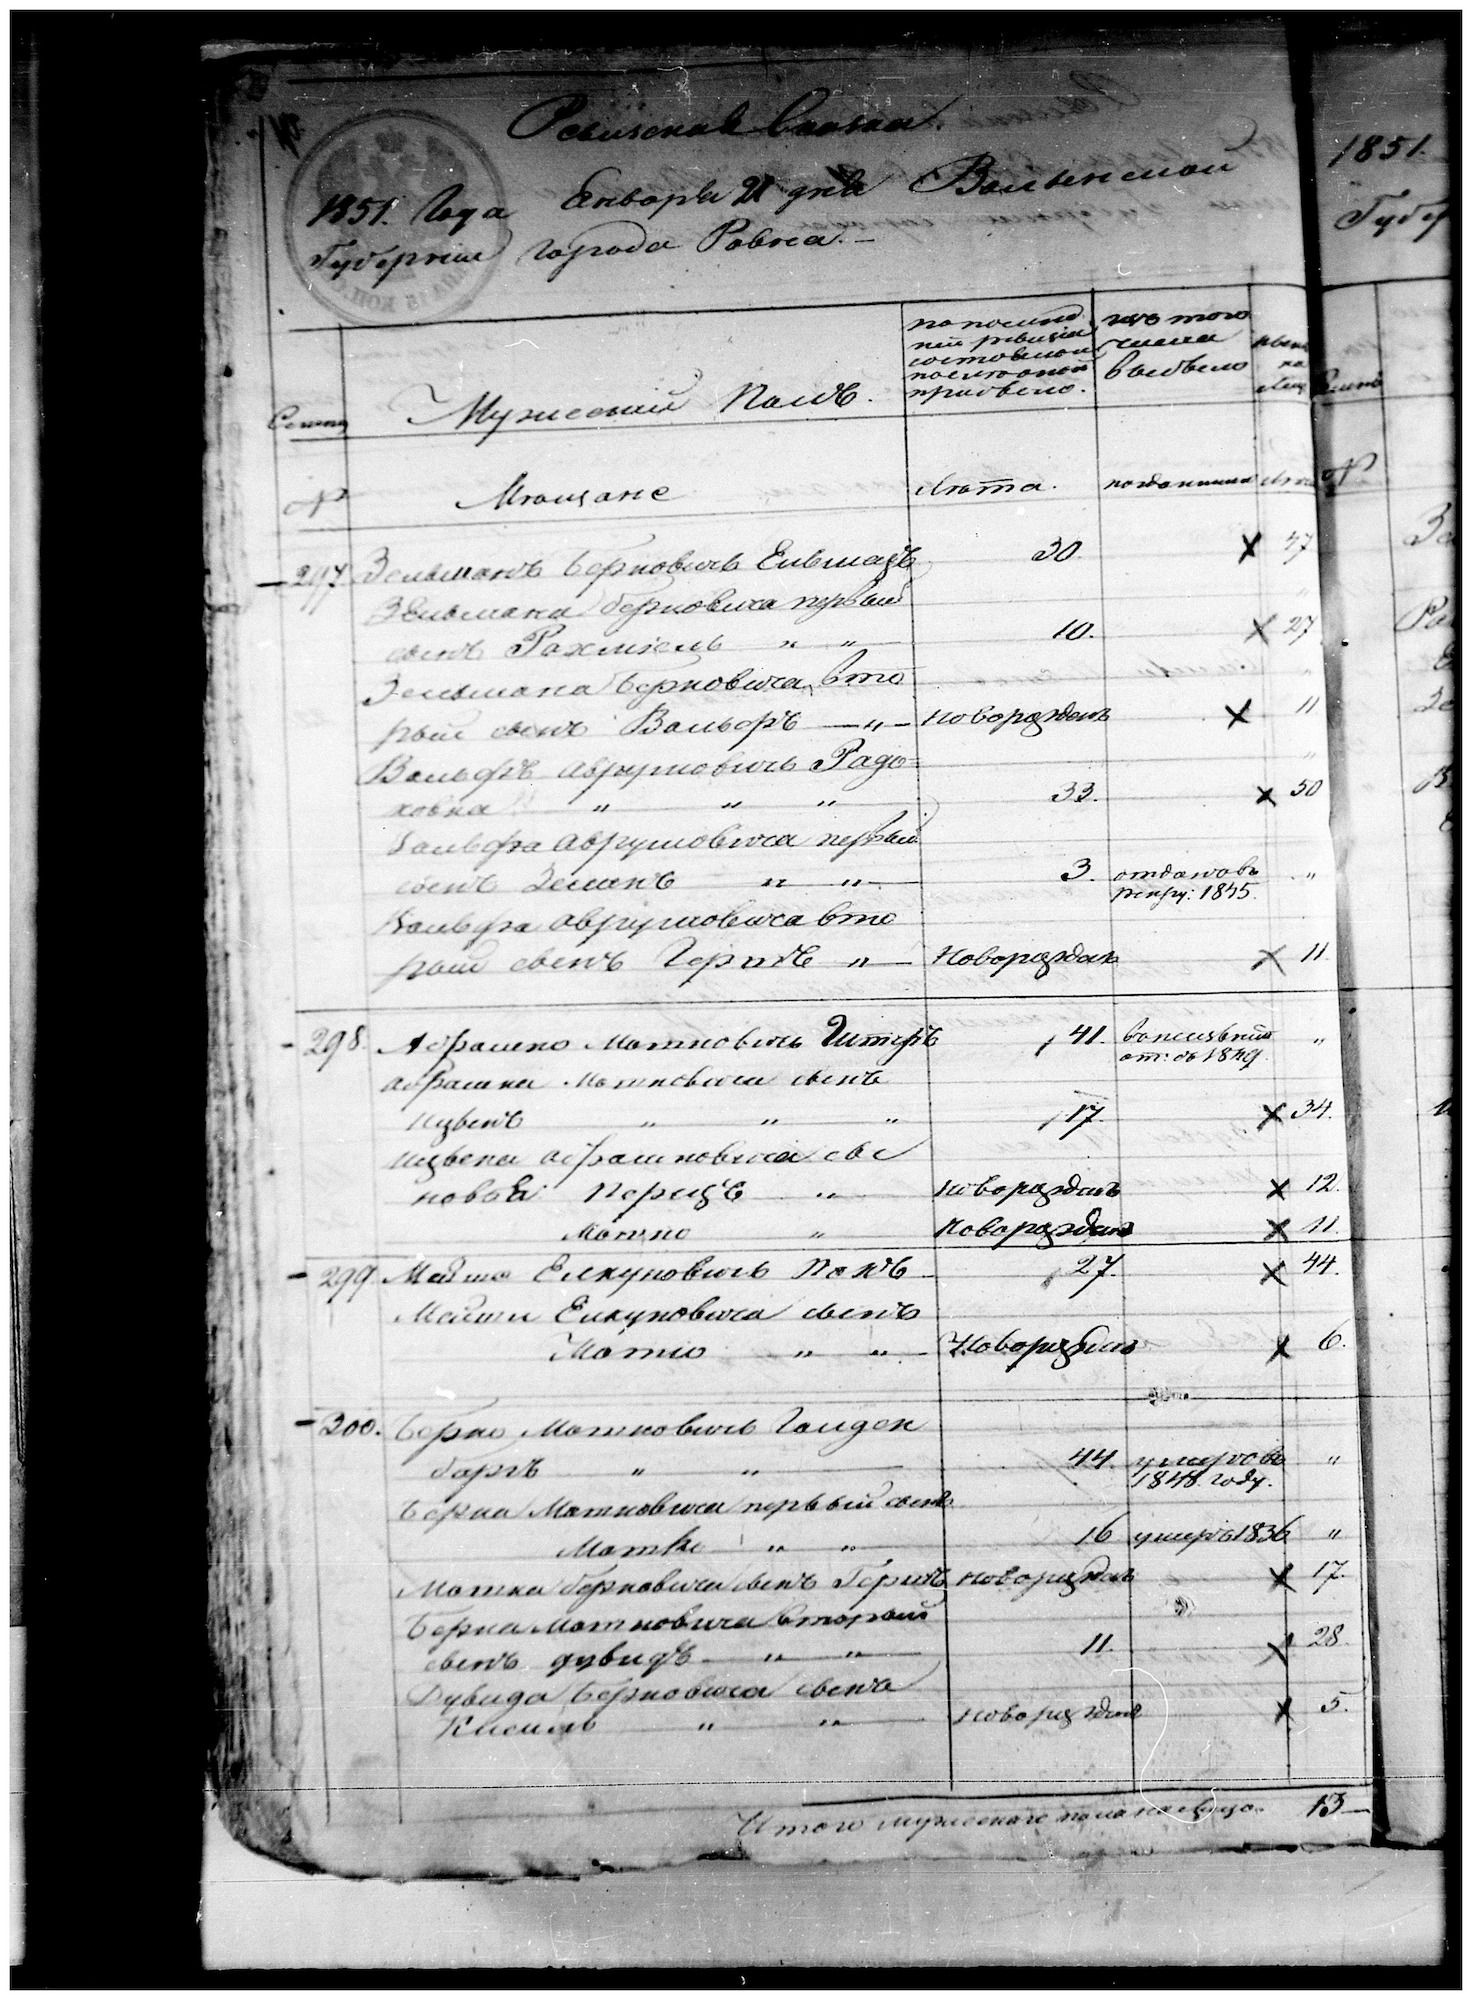 Ревизская Сказка.
1851. Года Генваря 21 дня Волынской
Губернии Города Ровна. —
Семьи
Мужеский Полъ.
по послед
ней ревизіи
состояло
и после оной
прибыло.
изъ того
числа
выбыло
ныне
на
лицо
№
Мещане
Лета.
когда именно
лета
297. Зельманъ Берковичъ 30. 47
Зельмана Берковича первый
сынъ Рахміель " " 10. 27
Зельмана Берковича вто
рый сынъ Вольфъ — " — Новорожденъ 11
Вольфъ Аврумовичъ Радо=
ховка " " " 33. 50
Вольфа Аврумовича первый
сынъ Зельманъ " " 3. отданъ въ "
рекру: 1845.
Вольфа Аврумовича вто
рый сынъ Гершъ " — Новорожден 11.
298. Абрамко Мошковичъ Штеръ 41. "
от: въ 1849.
Абрамка Мошковича сынъ
Ицыкъ " " " 17. 34.
Ицыка Абрамковича сы
новья Перецъ " Новорожденъ 12.
Мошко " Новорожден 11.
299. Мойше Елкуновичъ Покъ 27. 44.
Мойши Елкуновича сынъ
Мотіо " " Новорожден 6.
300. Берко Мошковичъ Голден
бергъ " " 44. умеръ въ "
1848. году.
Берка Мошковича первый сынъ
Мошко " " 16 умеръ 1836 "
Мошка Берковича сынъ Гершъ Новорожден 17.
Берка Мошковича вторый
сынъ Дувидъ " " 11. 28.
Дувида Берковича сынъ
Кисиль " " Новорожден 5.
Итого мужескаго пола на лицо. 13 —
1851.
Губер
№